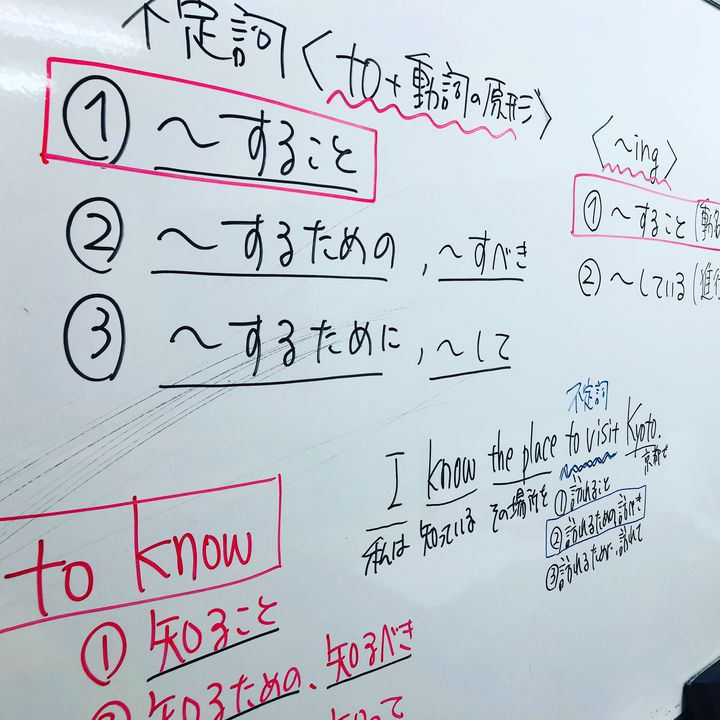 不定詞〈to+動詞の原形〉
① 〜すること
② 〜するための , 〜すべき
③ 〜するために , 〜して
〈〜ing〉
① 〜すること (動名
② 〜している (進行
不定詞
I know the place to visit Kyoto.
私は 知っている その場所を 京都を
① 訪れること
② 訪れるための 訪れるべき
③ 訪れるために 訪れて
to know
① 知ること
② 知るための、知るべき
知って